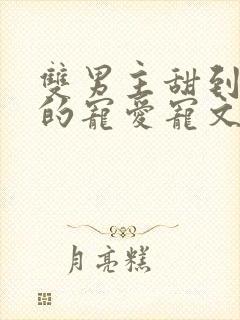 雙男主甜到
的寵愛寵文
月亮糕